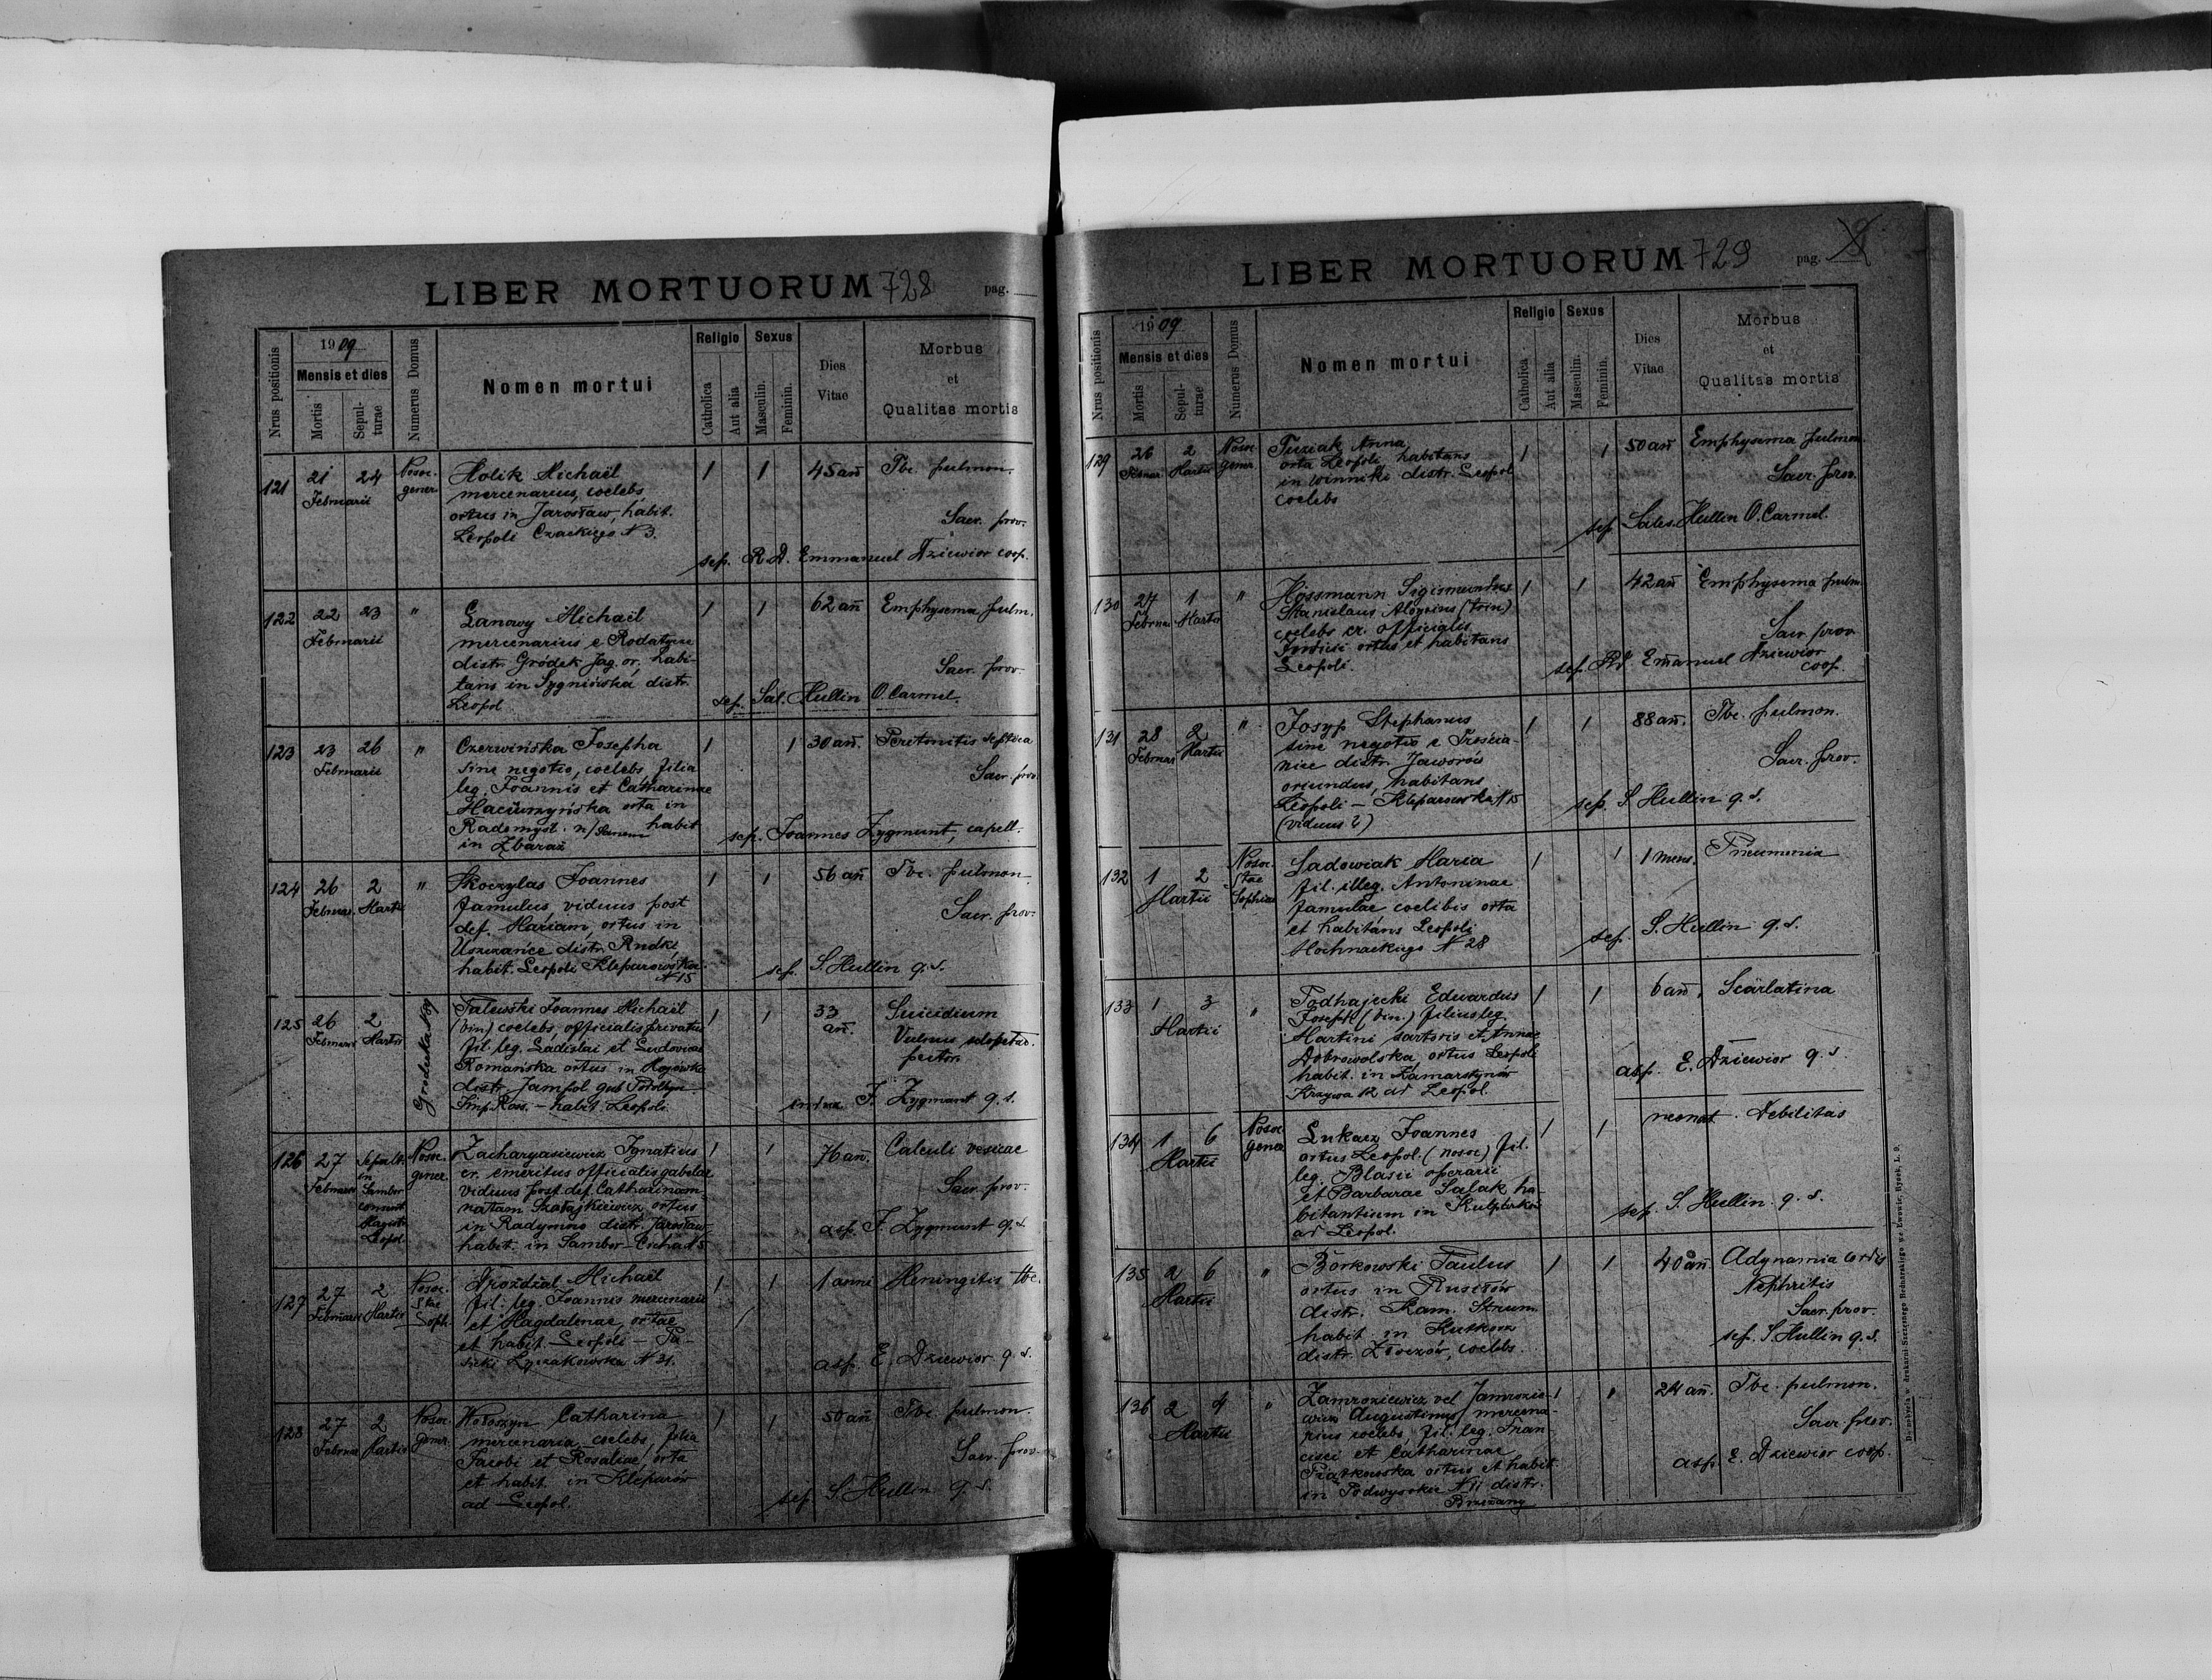 LIBER MORTUORUM 728 pag.
Nrus positionis
1909
Mensis et dies
Mortis
Sepulturae
Numerus Domus
Nomen mortui
Religio
Catholica
Aut alia
Sexus
Masculin.
Feminin.
Dies Vitae
Morbus
et
Qualitas mortis
121 21 24 Februarii Nosoc. gener.
Holik Michaël 1 1 45 añ Tbc. pulmon.
mercenarius, coelebs
ortus in Jarosław, habit.
Leopoli Czackiego N 3. Sacr. prov.
sep. R.D. Emmanuel Dziewior coop.
122 22 23 Februarii "
Lanowy Michaël 1 1 62 añ Emphysema pulm.
mercenarius e Rodatyne
distr. Gródek Jag. or. habi-
tans in Sygniówka distr. Sacr. prov.
Leopol sep. Sal. Hullin O. Carmel.
123 23 26 Februarii "
Czerwińska Josepha 1 1 30 añ. Peritonitis septica
sine negotio, coelebs filia Sacr. prov.
leg. Joannis et Catharinae
orta in
Radomyśl n/Sanem habit
in Zbaraż sep. Joannes Zygmunt, capell.
124 26 2 Februar. Martii "
Skoczylas Joannes 1 1 56 añ Tbc. pulmon.
famulus, viduus post
def. Mariam, ortus in Sacr. prov.
distr. Rudki
habit. Leopoli Kleparowska
N 15 sep. S. Hullin q. s.
125 26 2 Februarii Martii Grodecka
Joannes Michaël 1 1 33 añ. Suicidium
(bin) coelebs, officialis privatus Vulnus sclopetar.
fil. leg. Ladislai et Ludovicae pector.
Romańska ortus in
distr. Jampol gub Podolhyn
Imp. Ross. - habit. Leopoli. F. Zygmunt q. s.
126 27 Februarii Sepult. in Sambor consens. Magistr. Leopol. Nosoc. gener.
Zacharyasiewicz Ignatius 1 1 76 añ. Calculi vesicae
cr. emeritus officialis gabelae
viduus post def. Catharinam Sacr. prov.
natam ortus
in Radymno distr. Jarosław
habit. in Sambor - Cicha N 5. asp. F. Zygmunt q. s.
127 27 2 Februarii Martii Nosoc. Stae Soph.
Drożdżal Michaël 1 1 1 anni Meningitis tbc.
fil. leg. Joannis mercenarii
et Magdalenae, ortae
et habit. Leopoli - Pa-
sieki Łyczakowska N 31. asp. E. Dziewior q. s.
128 27 2 Februar Martii Nosoc. gener.
Wołoszyn Catharina 1 1 50 añ Tbc. pulmon.
mercenaria, coelebs, filia
Jacobi et Rosaliae, orta Sacr. prov.
et habit. in Kleparów
ad Leopol. sep. S. Hullin q. s.
LIBER MORTUORUM 729 pag.
Nrus positionis
1909
Mensis et dies
Mortis
Sepulturae
Numerus Domus
Nomen mortui
Religio
Catholica
Aut alia
Sexus
Masculin.
Feminin.
Dies Vitae
Morbus
et
Qualitas mortis
129 26 2 Februar. Martii Nosoc. gener.
Tuziak Anna 1 1 50 añ Emphysema pulmon.
orta Leopoli habitans
in Winniki distr. Leopol Sacr. prov.
coelebs
sep. Sales. Hullin O. Carmel.
130 27 1 Februar Martii "
Hossmann Sigismundus 1 1 42 añ Emphysema pulm.
Stanislaus Aloysius (trin)
coelebs cr. officialis
ortus et habitans Sacr. prov.
Leopoli. sep. Rd. Emanuel Dziewior
coop.
131 28 2 Februar Martii "
Josyp Stephanus 1 1 88 añ. Tbc. pulmon.
sine negotio e Trościa-
niec distr. Jaworów Sacr. prov.
oriundus, habitans
Leopoli - Kleparowska N 15 sep. S Hullin q. s.
(viduus ?)
132 1 2 Martii Nosoc. Stae Sophiae
Sadowiak Maria 1 1 1 mens. Pneumonia
fil. illeg. Antoninae
famulae coelibis orta
et habitans Leopoli
Mochnackiego N 28 sep. S. Hullin q. s.
133 1 3 Martii "
Podhajecki Eduardus 1 1 6 añ. Scarlatina
Joseph (bin.) filius leg.
Martini sartoris et Annae
Dobrowolska, ortus Leopoli
habit. in Zamarstynów
Krzywa 12 ad Leopol. asp. E. Dziewior q. s.
134 1 6 Martii Nosoc. gener.
Lukacz Joannes 1 1 neonat. Debilitas
ortus Leopol. (nosoc) fil.
leg. Blasii operarii
et Barbarae Salak ha-
bitantium in Kulparków
ad Leopol. sep. S. Hullin q. s.
135 2 6 Martii "
Borkowski Paulus 1 1 40 añ Adynamia cordis
ortus in Rusiłów Nephritis
distr. Kam. Strum. Sacr. prov.
habit. in Kutkorz sep. S. Hullin q. s.
distr. Złoczów, coelebs.
136 2 4 Martii "
Zamroziewicz vel Jamrozie- 1 " 24 añ. Tbc. pulmon.
wicz Augustinus mercena-
rius coelebs, fil. leg. Fran- Sacr. prov.
cisci et Catharinae
Piątkowska ortus et habit. asp. E. Dziewior coop.
in Podwysokie N 11 distr.
Brzeżany
Do nabycia w drukarni Szczęsnego Bednarskiego we Lwowie, Rynek, L. 9.